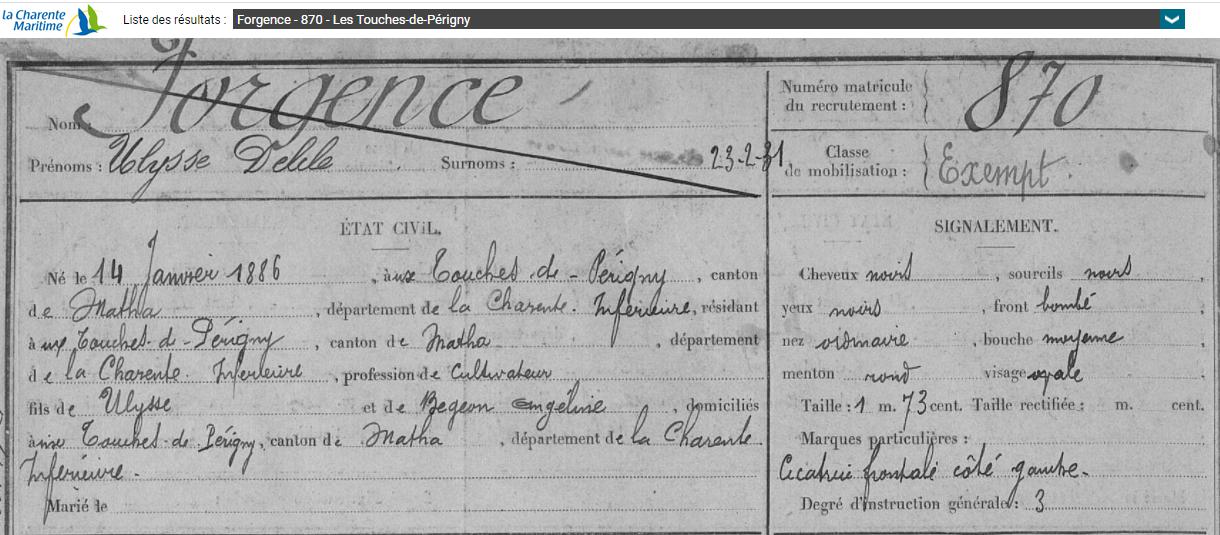 la Charente Maritime
Liste des résultats : Forgence - 870 - Les Touches-de-Périgny
Nom Forgence
Prénoms : Ulysse Delile Surnoms : 23-2-31.
Numéro matricule du recrutement : 870
Classe de mobilisation : Exempt.
ÉTAT CIVIL.
Né le 14 Janvier 1886, à ux Touches-de-Périgny, canton
de Matha, département de la Charente. Inférieure, résidant
à ux Touches-de-Périgny, canton de Matha, département
de la Charente. Inférieure, profession de Cultivateur
fils de Ulysse et de Begeon Angeline, domiciliés
à ux Touches-de-Périgny, canton de Matha, département de la Charente
Inférieure.
Marié le
SIGNALEMENT.
Cheveux noirs, sourcils noirs,
yeux noirs, front bombé
nez ordinaire, bouche moyenne
menton rond visage ovale
Taille : 1 m. 73 cent. Taille rectifiée : m. cent.
Marques particulières :
Cicatrice frontale côté gauche.
Degré d'instruction générale : 3